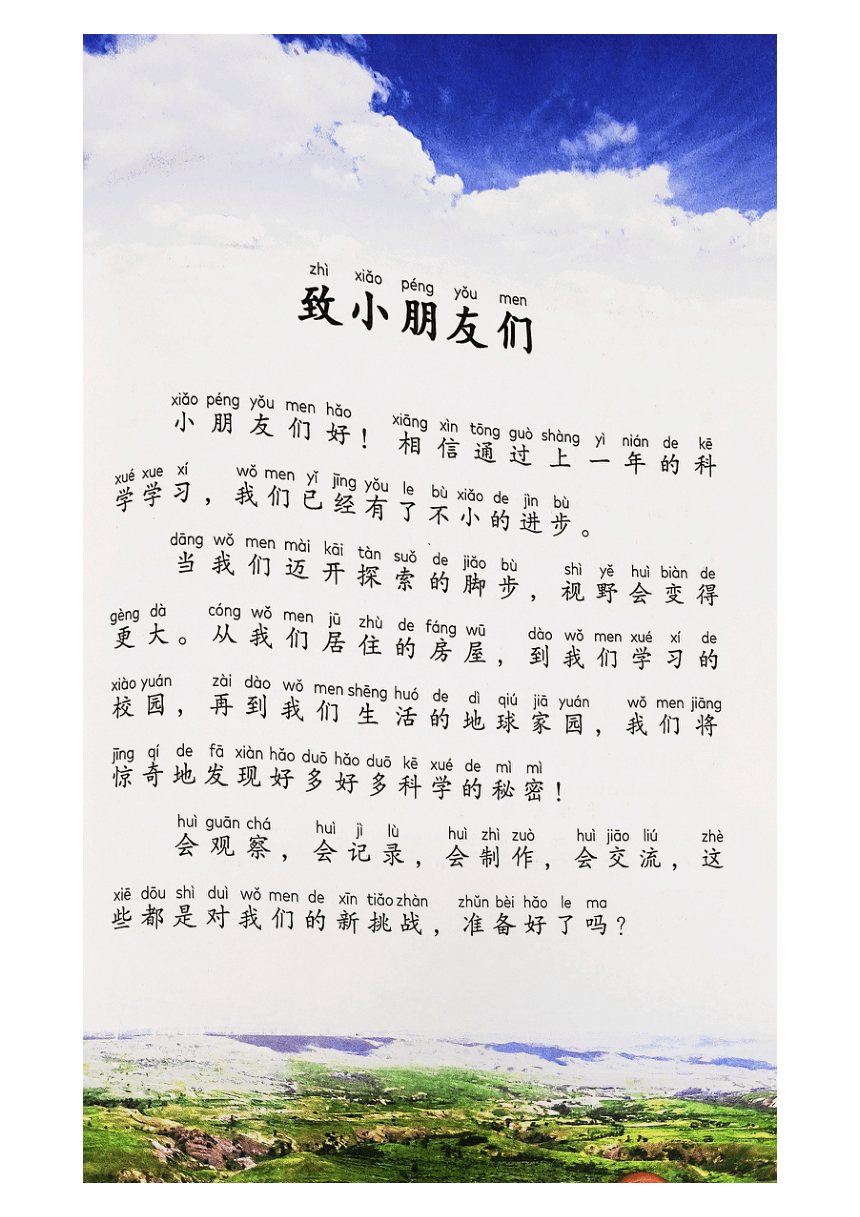 zhì xiǎo péng yǒu men
致小朋友们
xiǎo péng yǒu men hǎo xiāng xìn tōng guò shàng yì nián de kē
小朋友们好！相信通过上一年的科
xué xue xí wǒ men yǐ jīng yǒu le bù xiǎo de jìn bù
学学习，我们已经有了不小的进步。
dāng wǒ men mài kāi tàn suǒ de jiǎo bù shì yě huì biàn de
当我们迈开探索的脚步，视野会变得
gèng dà cóng wǒ men jū zhù de fáng wū dào wǒ men xué xí de
更大。从我们居住的房屋，到我们学习的
xiào yuán zài dào wǒ men shēng huó de dì qiú jiā yuán wǒ men jiāng
校园，再到我们生活的地球家园，我们将
jīng qí de fā xiàn hǎo duō hǎo duō kē xué de mì mì
惊奇地发现好多好多科学的秘密！
huì guān chá huì jì lù huì zhì zuò huì jiāo liú zhè
会观察，会记录，会制作，会交流，这
xiē dōu shì duì wǒ men de xīn tiǎo zhàn zhǔn bèi hǎo le ma
些都是对我们的新挑战，准备好了吗？